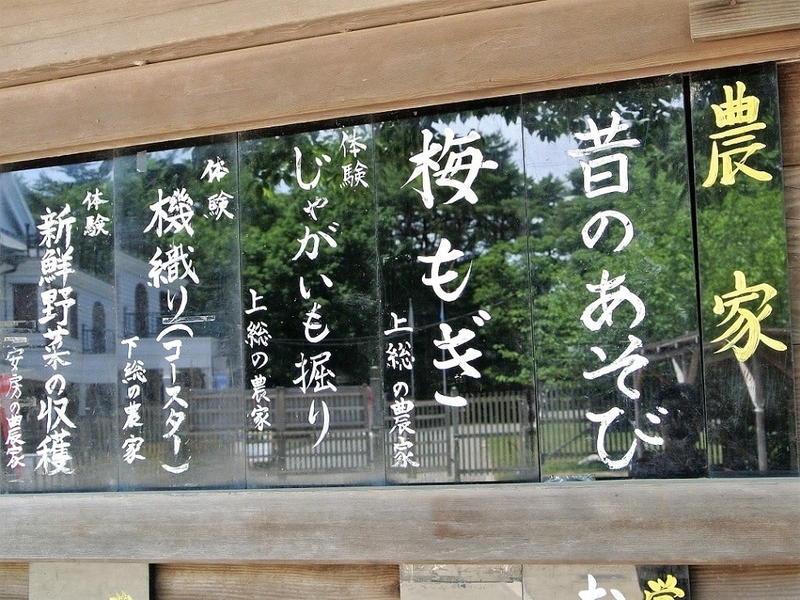 農家
昔のあそび
梅もぎ
上総の農家
体験
じゃがいも掘り
上総の農家
体験
機織り(コースター)
下総の農家
体験
新鮮野菜の収穫
安房の農家